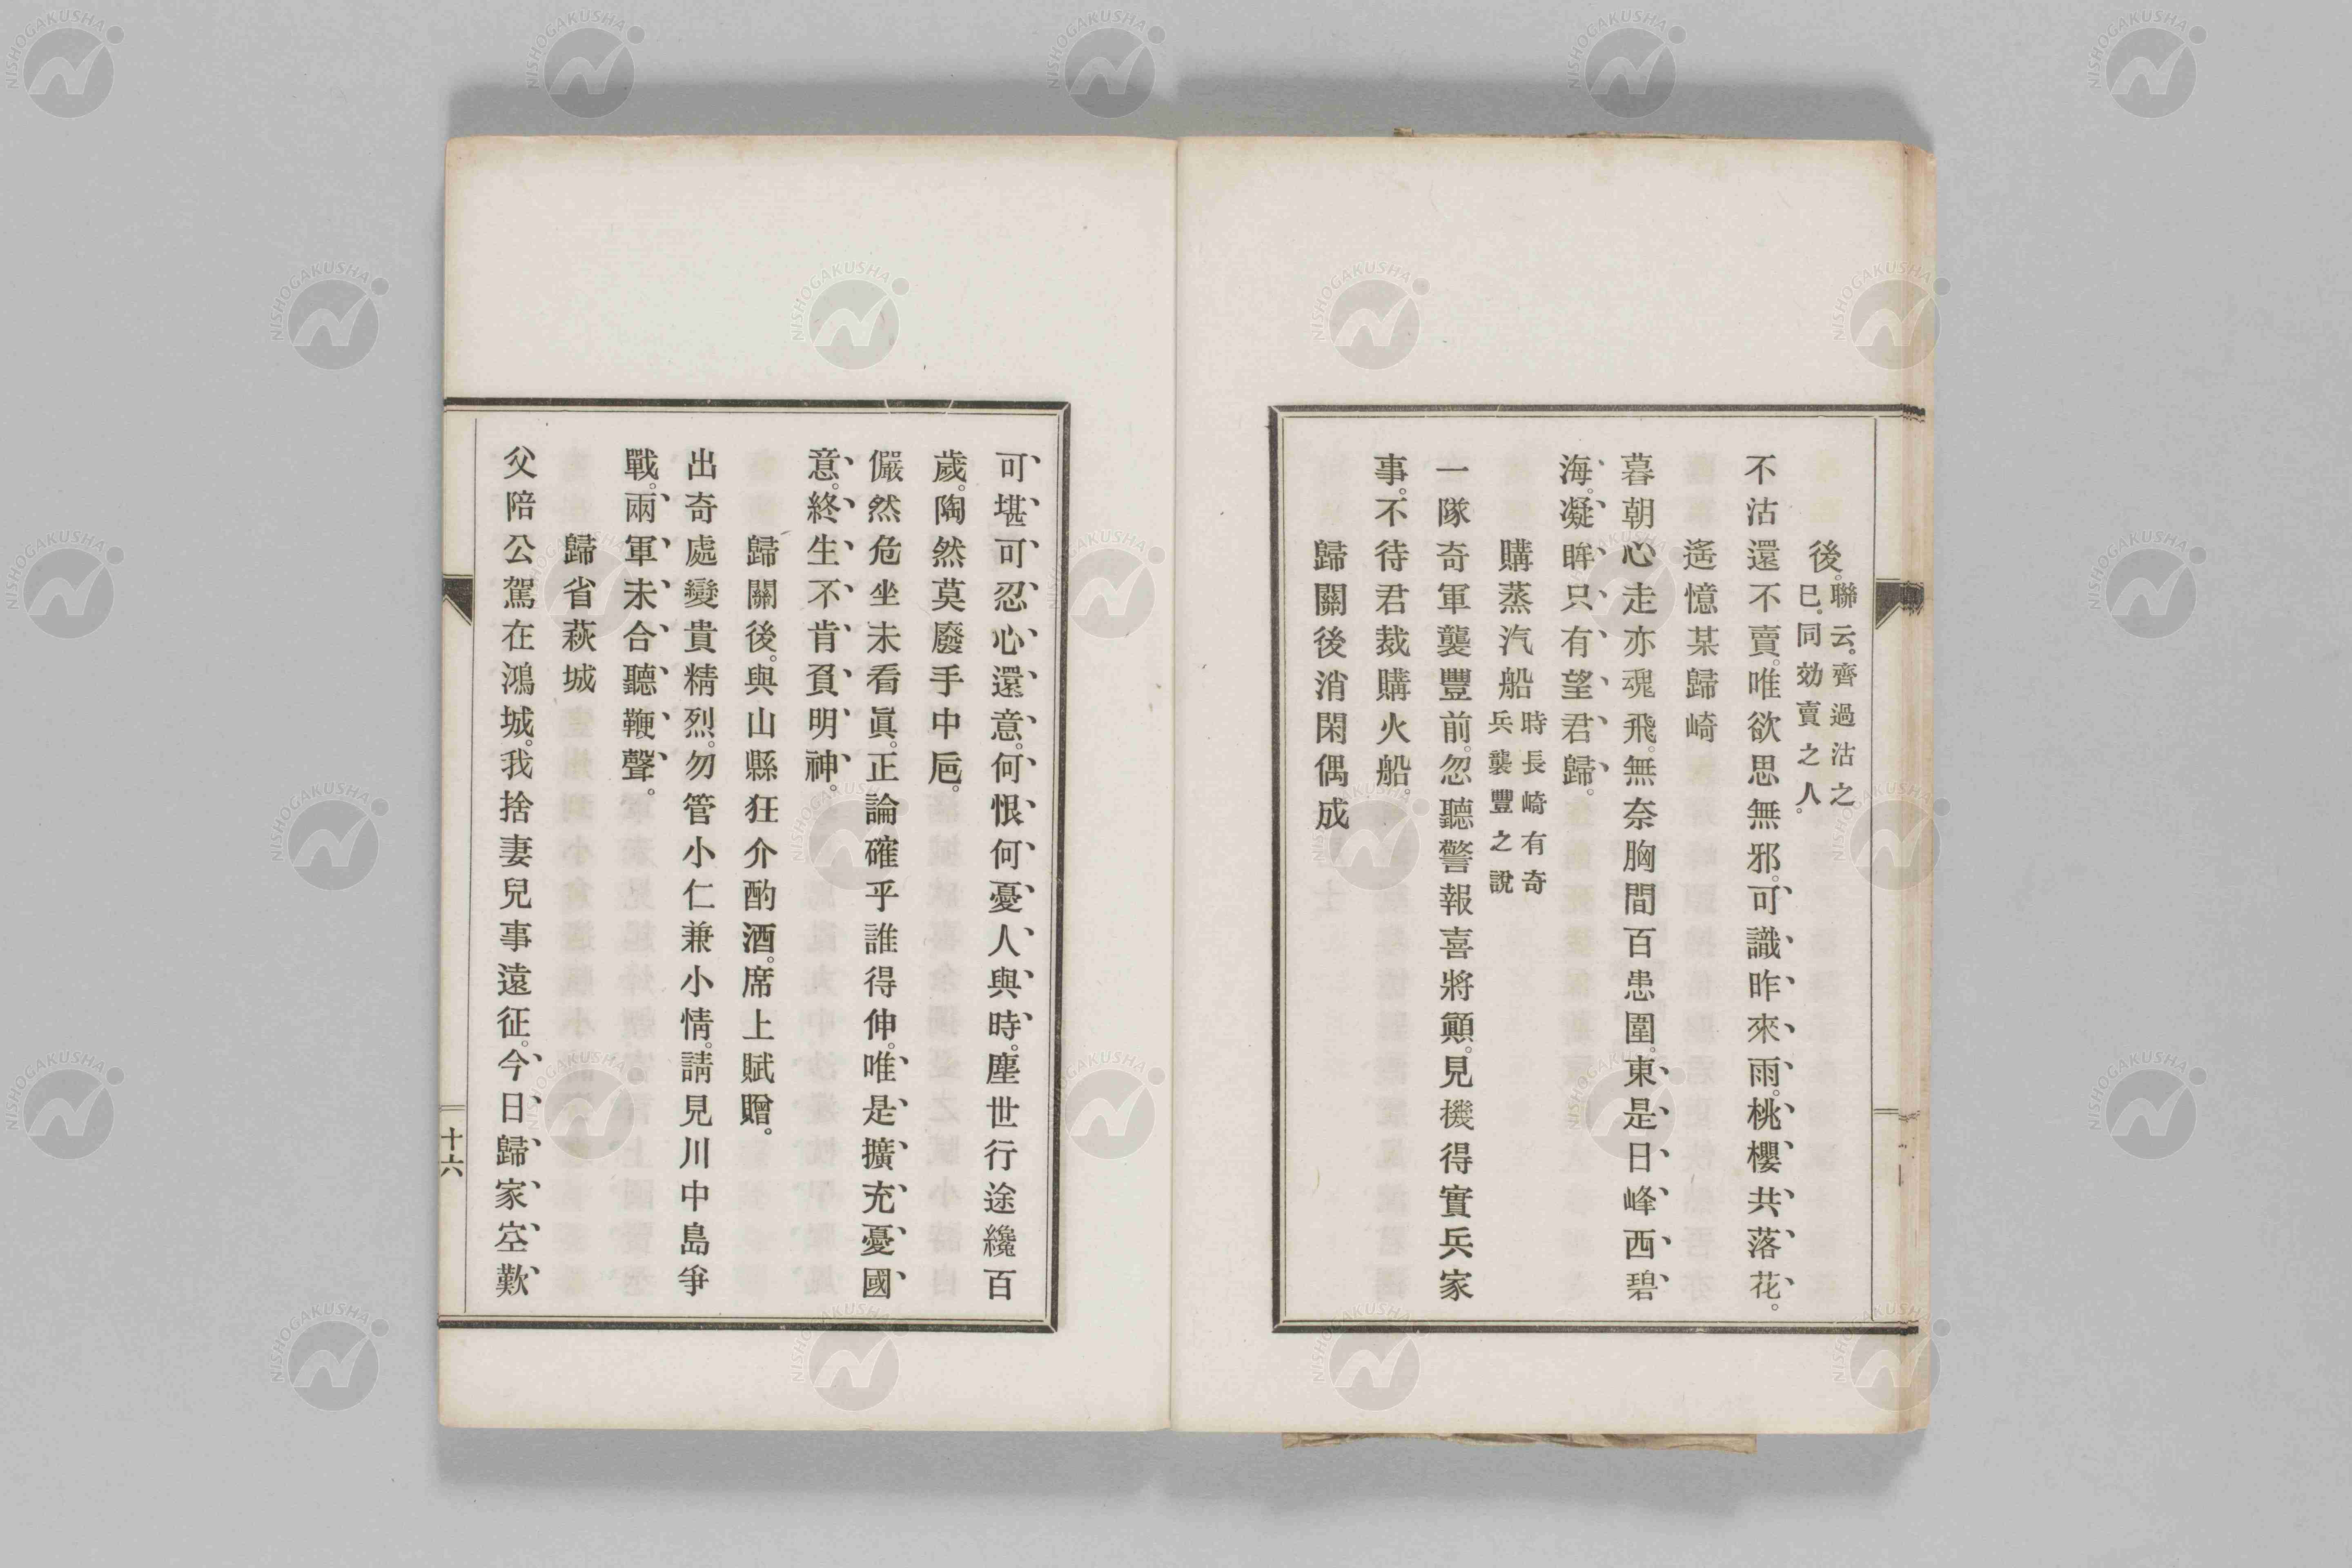 後。聯云。齊過沽之
巳。同効賣之人。
不沽還不賣。唯欲思無邪。可識昨來雨。桃櫻共落花。
遙憶某歸崎
暮朝心走亦魂飛。無奈胸間百患圍。東是日峰西碧
海。凝眸只有望君歸。
購蒸汽船時長崎有奇
兵襲豐之說
一隊奇軍襲豐前。忽聽警報喜將顚。見機得實兵家
事。不待君裁購火船。
歸關後消閑偶成
可堪可忍心還意。何恨何憂人與時。塵世行途纔百
歲。陶然莫廢手中巵。
儼然危坐未看眞。正論確乎誰得伸。唯是擴充憂國
意。終生不肯負明神。
歸關後。與山縣狂介酌酒。席上賦贈。
出奇處變貴精烈。勿管小仁兼小情。請見川中島爭
戰。兩軍未合聽鞭聲。
歸省萩城
父陪公駕在鴻城。我捨妻兒事遠征。今日歸家空歎
十六
NISHOGAKUSHA